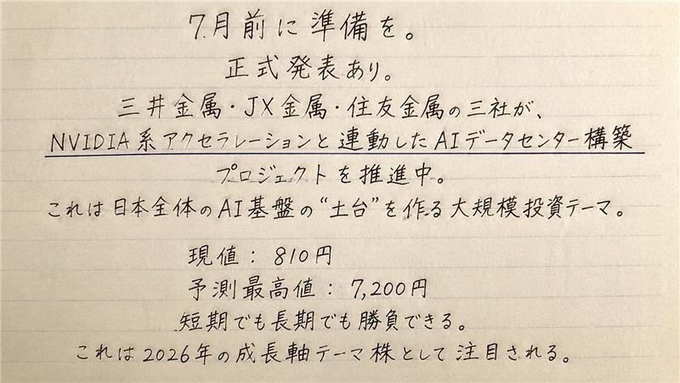 7月前に準備を。
正式発表あり。
三井金属・JX金属・住友金属の三社が、
NVIDIA系アクセラレーションと連動したAIデータセンター構築
プロジェクトを推進中。
これは日本全体のAI基盤の“土台”を作る大規模投資テーマ。
現値：810円
予測最高値：7,200円
短期でも長期でも勝負できる。
これは2026年の成長軸テーマ株として注目される。